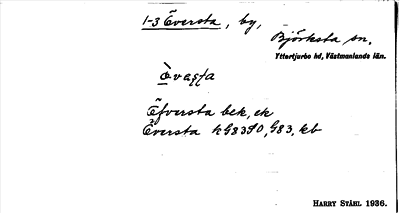 1-3 Översta, by,
Björksta sn.
Yttertjurbo hd, Västmanlands län.
Öfversta bek, ek
Översta
HARRY STÅHL 1936.